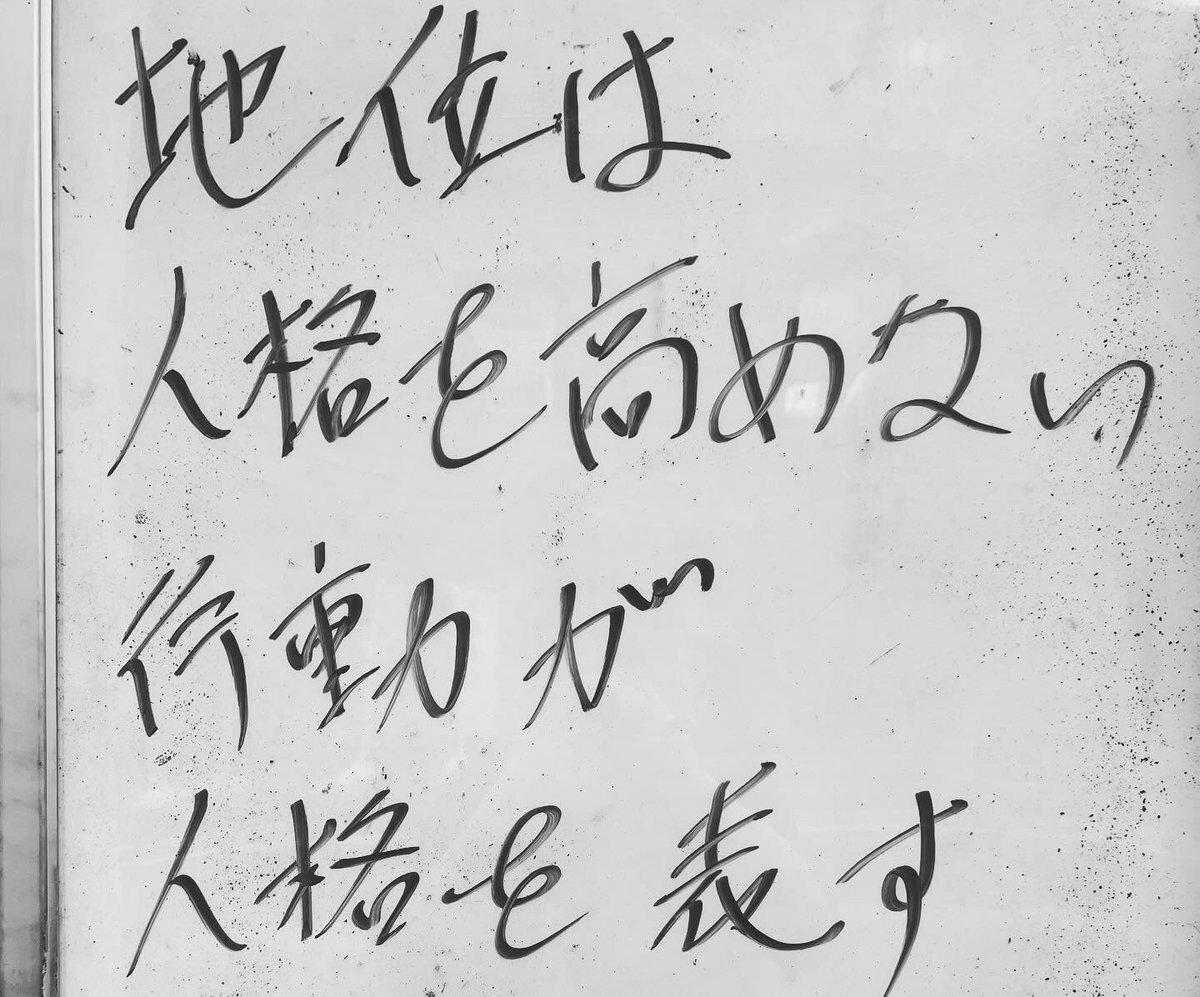 地位は
人格を高めない
行動が
人格を表す